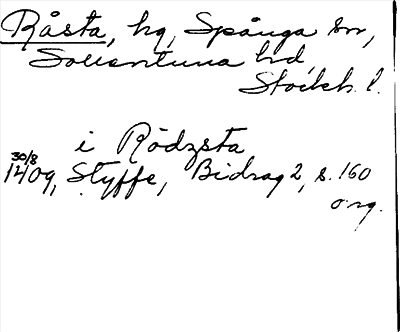 Råsta, hg, Spånga sn,
Sollentuna hd,
Stockh. l.
i Rödzsta
30/8
1409, Styffe, Bidrag 2, s. 160
org.